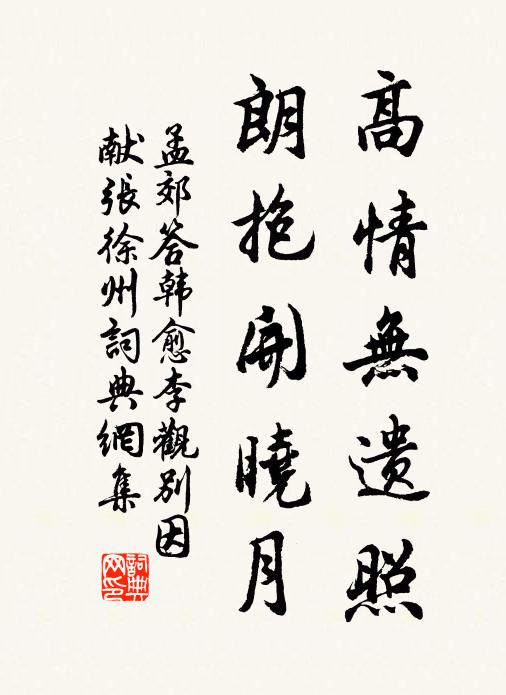 高情無遺照
朗抱開曉月
孟郊答韩愈李觀別因
献張徐州詞典網集
詞典
网印